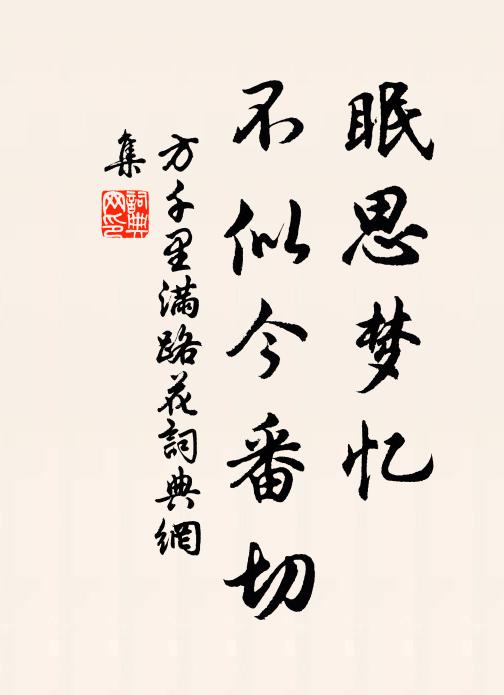 眠思梦忆
不似今番切
方千里满路花詞典網
集
詞典网印